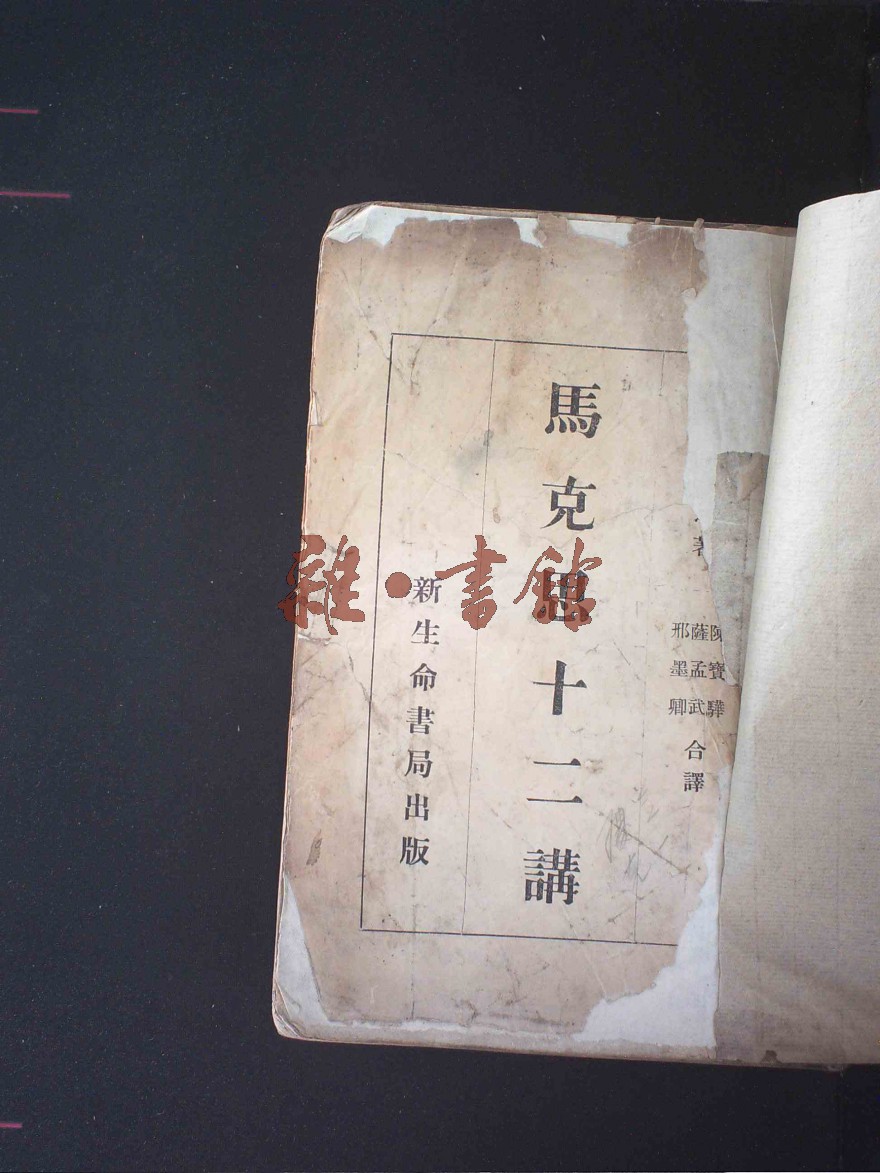 著
陳寶驊
薩孟武
邢墨卿
合譯
馬克思十二講
新生命書局出版
雜·書館